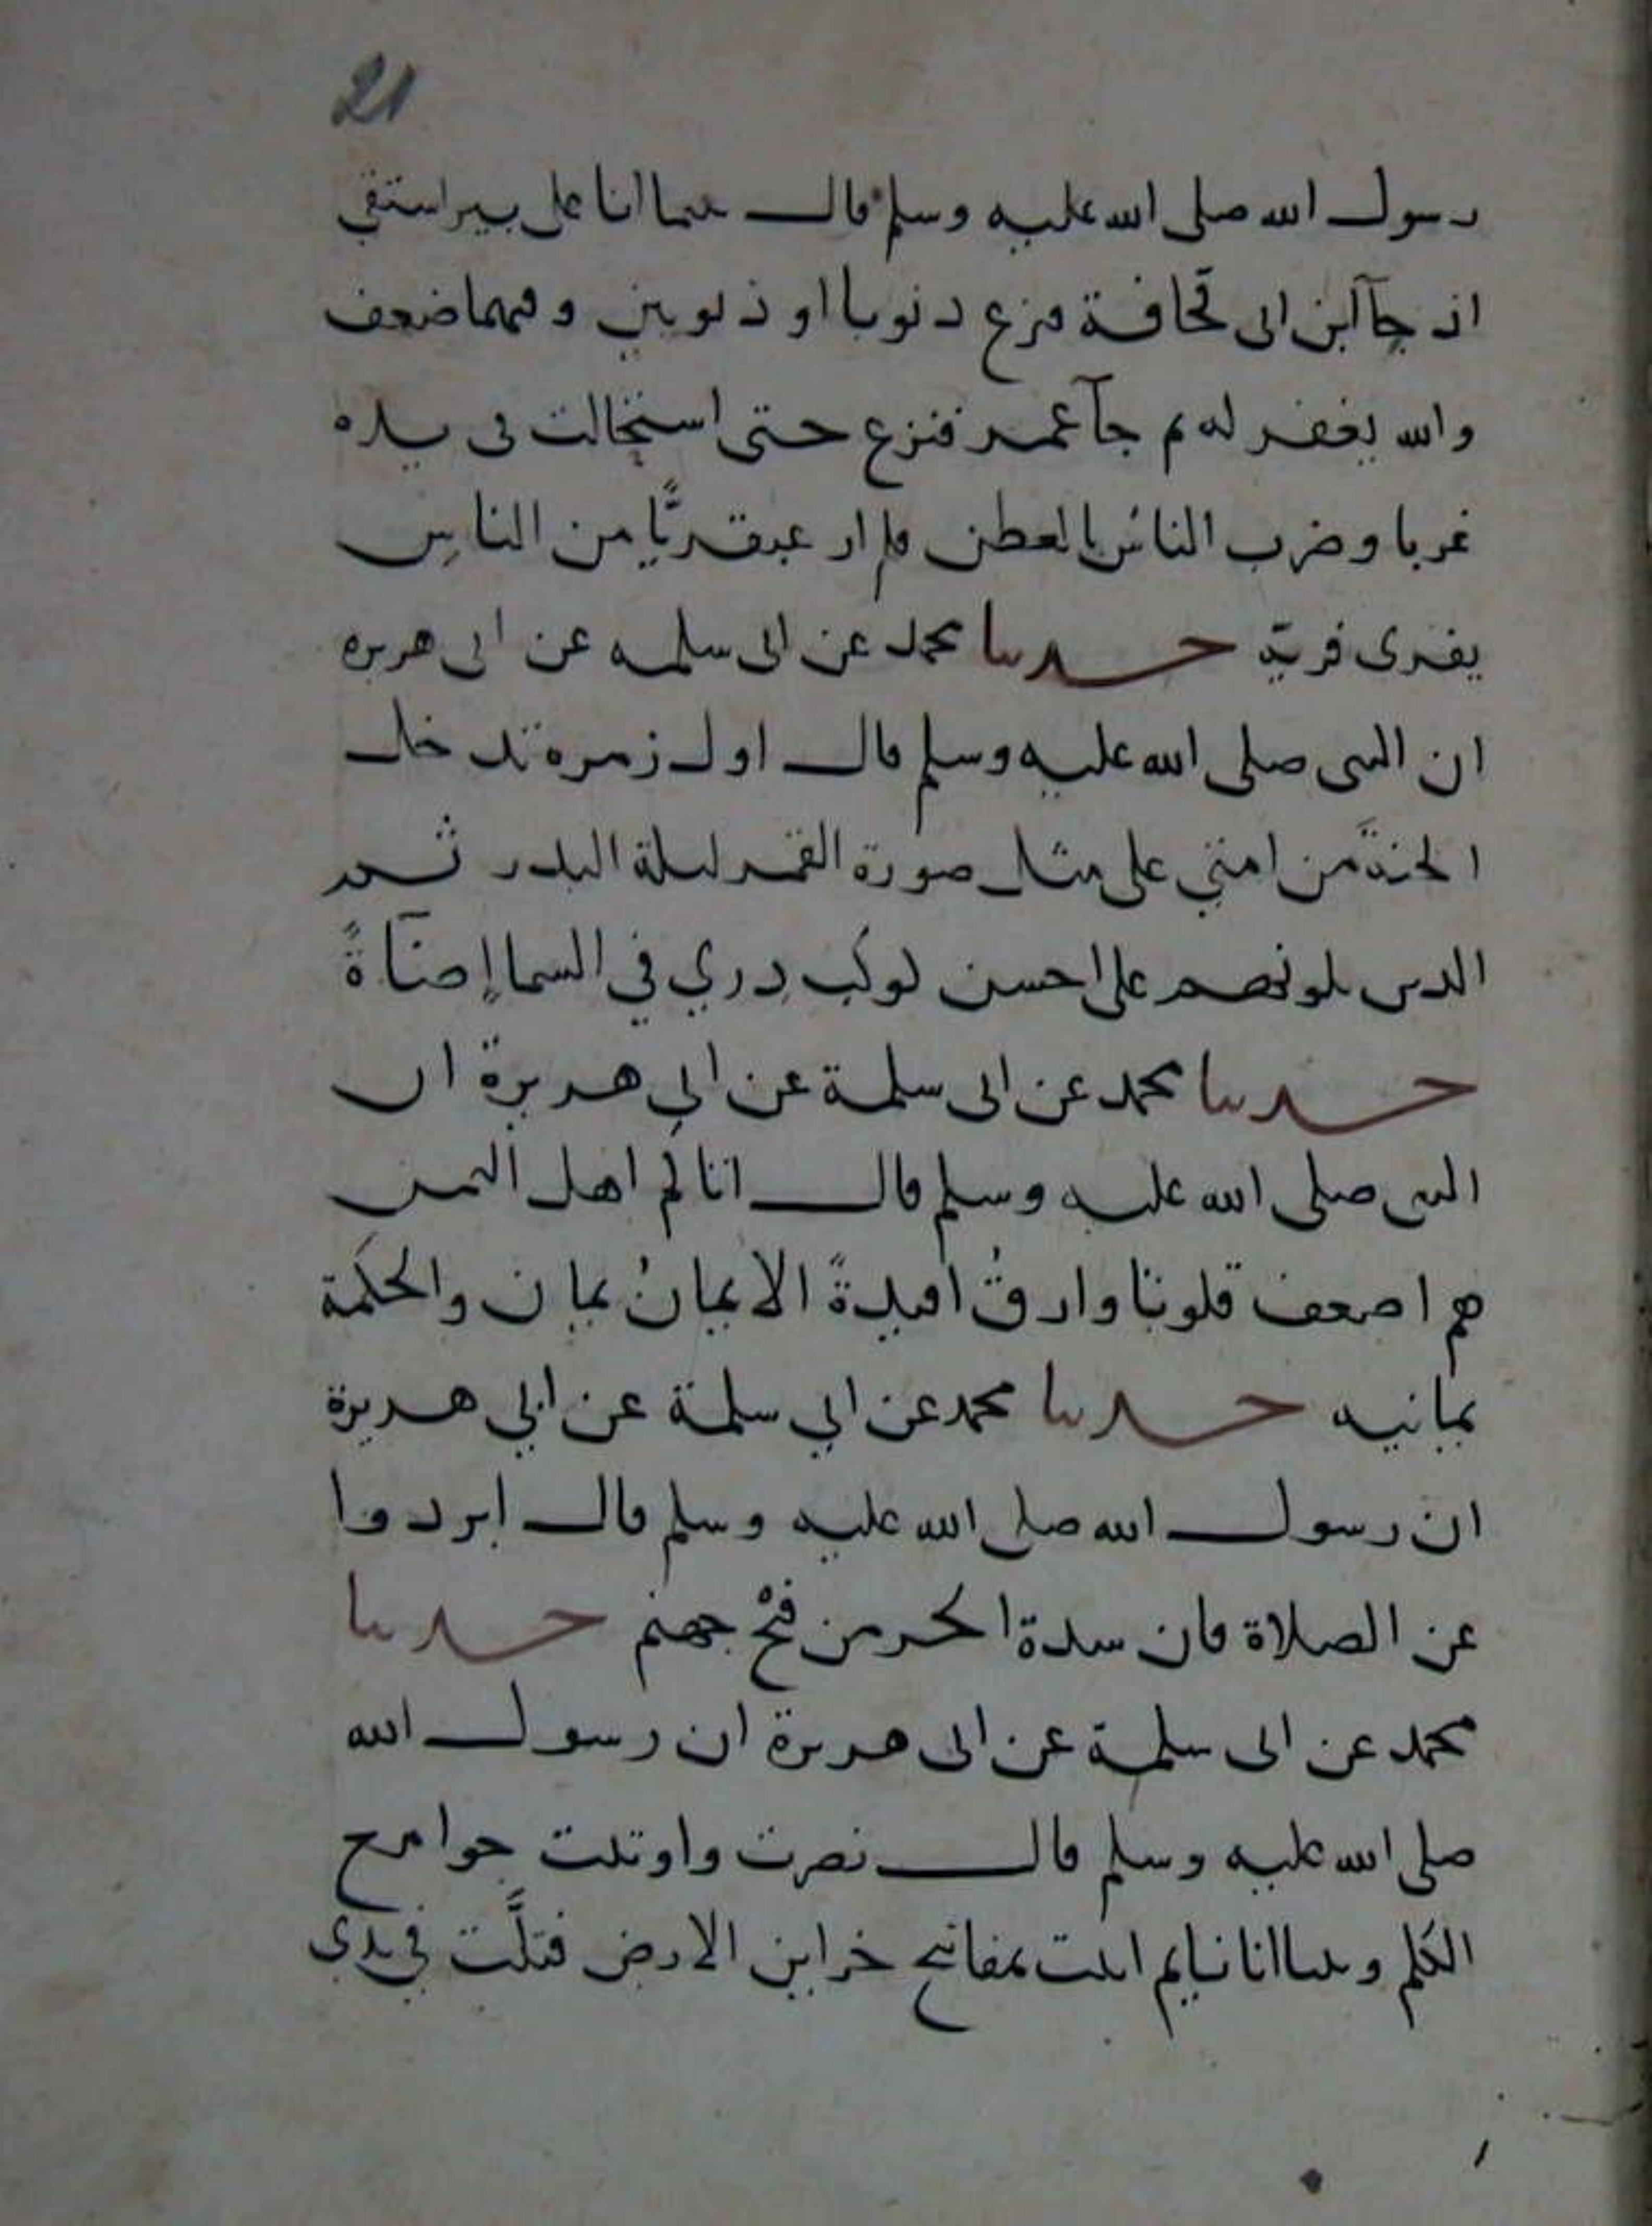 21
رسول الله صلى الله عليه وسلم قال بينما انا على بير استقي
اذ جآ ابن ابى قحافة فنزع دنوبا او ذنوبين وفيهما ضعف
والله يغفر له ثم جآ عمر فنزع حتى استحالت فى يده
غربا وضرب الناسُ بالعطن فلم ار عبقريًّا من الناس
يفرى فريه حدثنا محمد عن ابى سلمه عن ابى هريره
ان النبى صلى الله عليه وسلم قال اول زمره تدخل
الجنةَ من امتي على مثل صورة القمر ليلة البدر ثم
الذين يلونهم على احسن كوكب دري في السما إضآةً
حدثنا محمد عن ابى سلمة عن ابي هريرة ان
النبى صلى الله عليه وسلم قال اتاكم اهل اليمن
هم اضعف قلوبًا وارقُ افيدةً الايمانُ يمان والحكمة
يمانيه حدثنا محمد عن ابي سلمة عن ابي هريرة
ان رسول الله صلى الله عليه وسلم قال ابردوا
عن الصلاة فان شدة الحر من فيْح جهنم حدثنا
محمد عن ابى سلمة عن ابى هريرة ان رسول الله
صلى الله عليه وسلم قال نصرت واوتيت جوامع
الكلم وبينا انا نايم اتيت بمفاتيح خزاين الارض فتلَّت في يدي